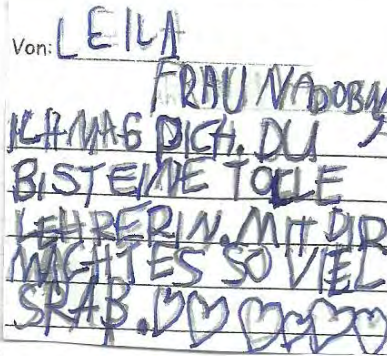 Von: LEILA
FRAU NADOBNY
ICH MAG DICH. DU
BIST EINE TOLLE
LEHRERIN. MIT DIR
MACHT ES SO VIEL
SPAß.